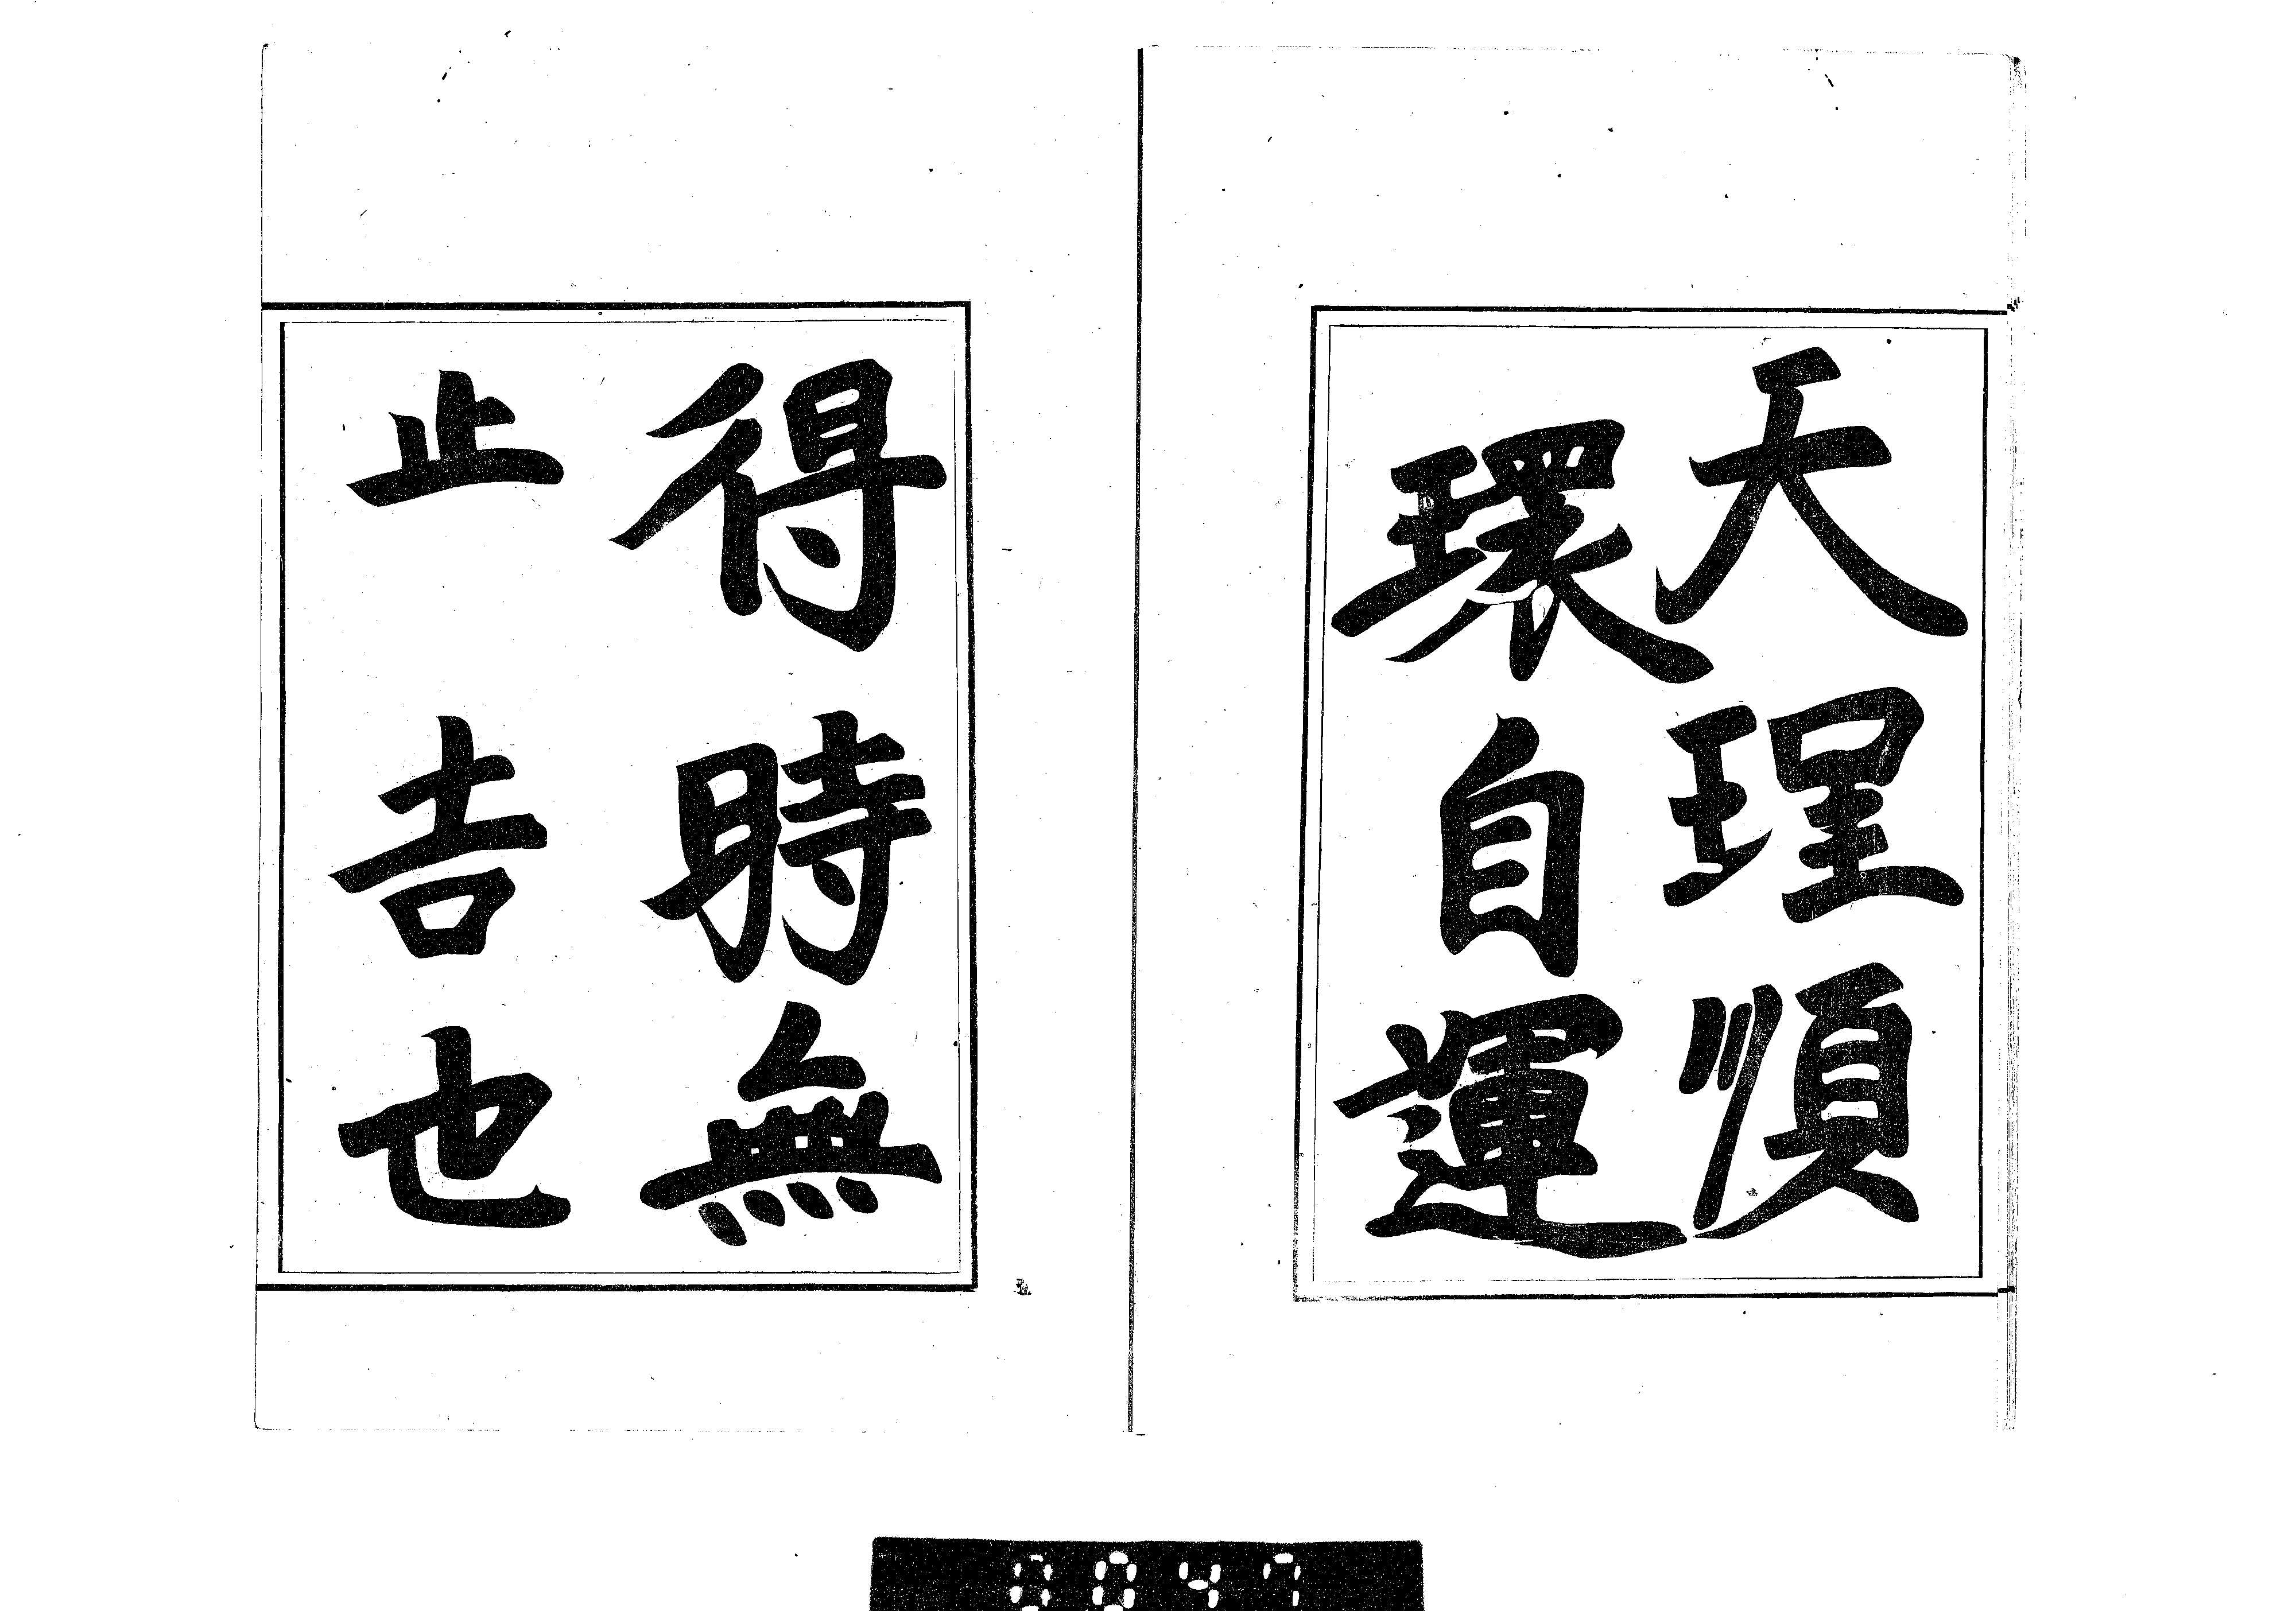 天理順
環自運
得時無
止吉也
0047